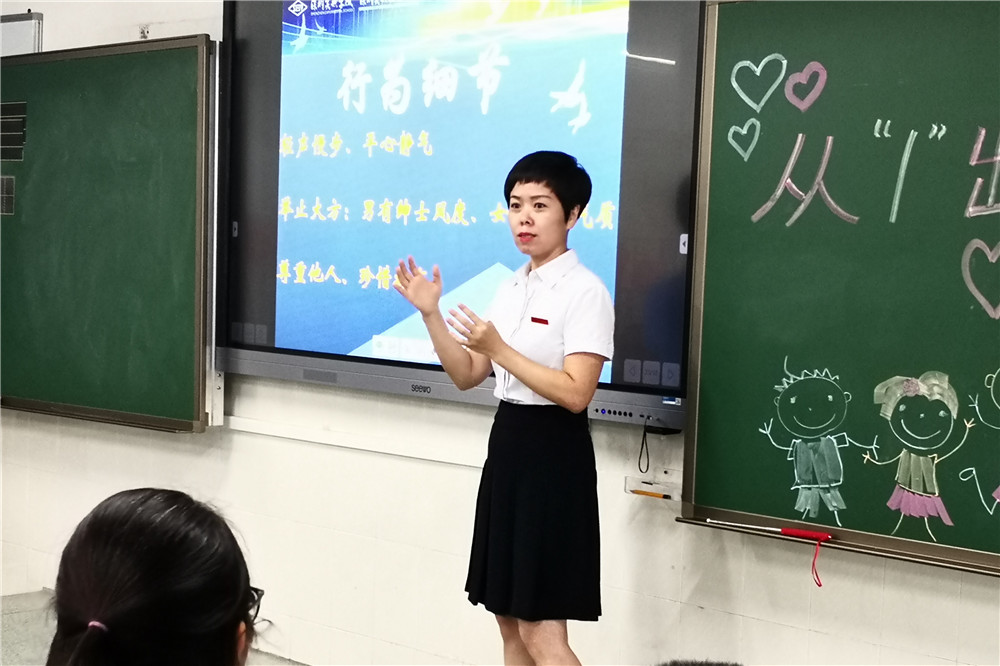 行为细节
轻声慢步、平心静气
举止大方：男有绅士风度、女 气质
尊重他人、珍惜
seewo
从“1”出